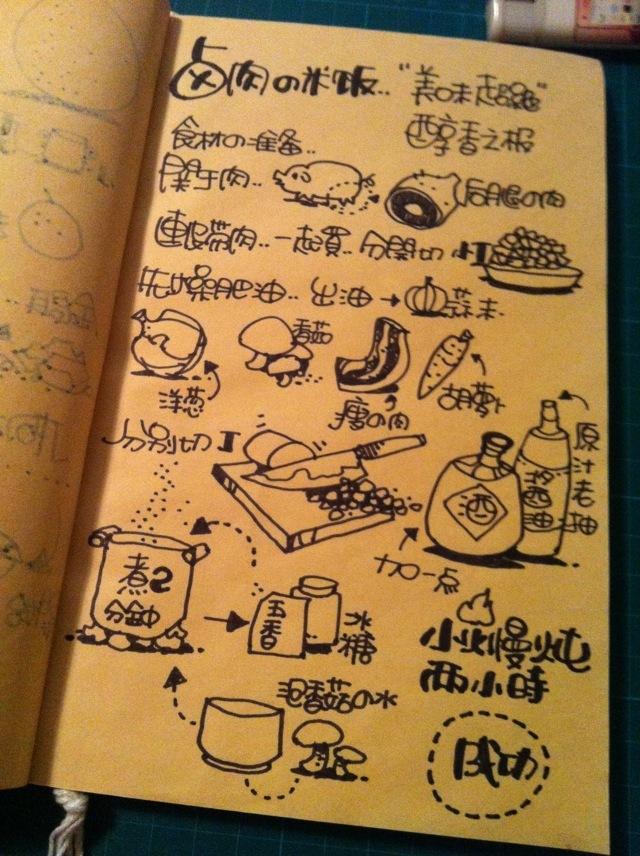 卤肉の米飯.. "美味起龜"
醇香之极
食材の准备..
関于肉.. 后腿の肉
連皮帶肉.. 一起買.. 分開切 小丁
先爆肥油.. 出油→ 蒜末
洋葱 香菇 瘦の肉 胡萝卜
分别切丁
酒 酱油 原汁老抽
加一点
煮2分钟
五香 冰糖
泡香菇の水
小火慢炖
两小時
成功